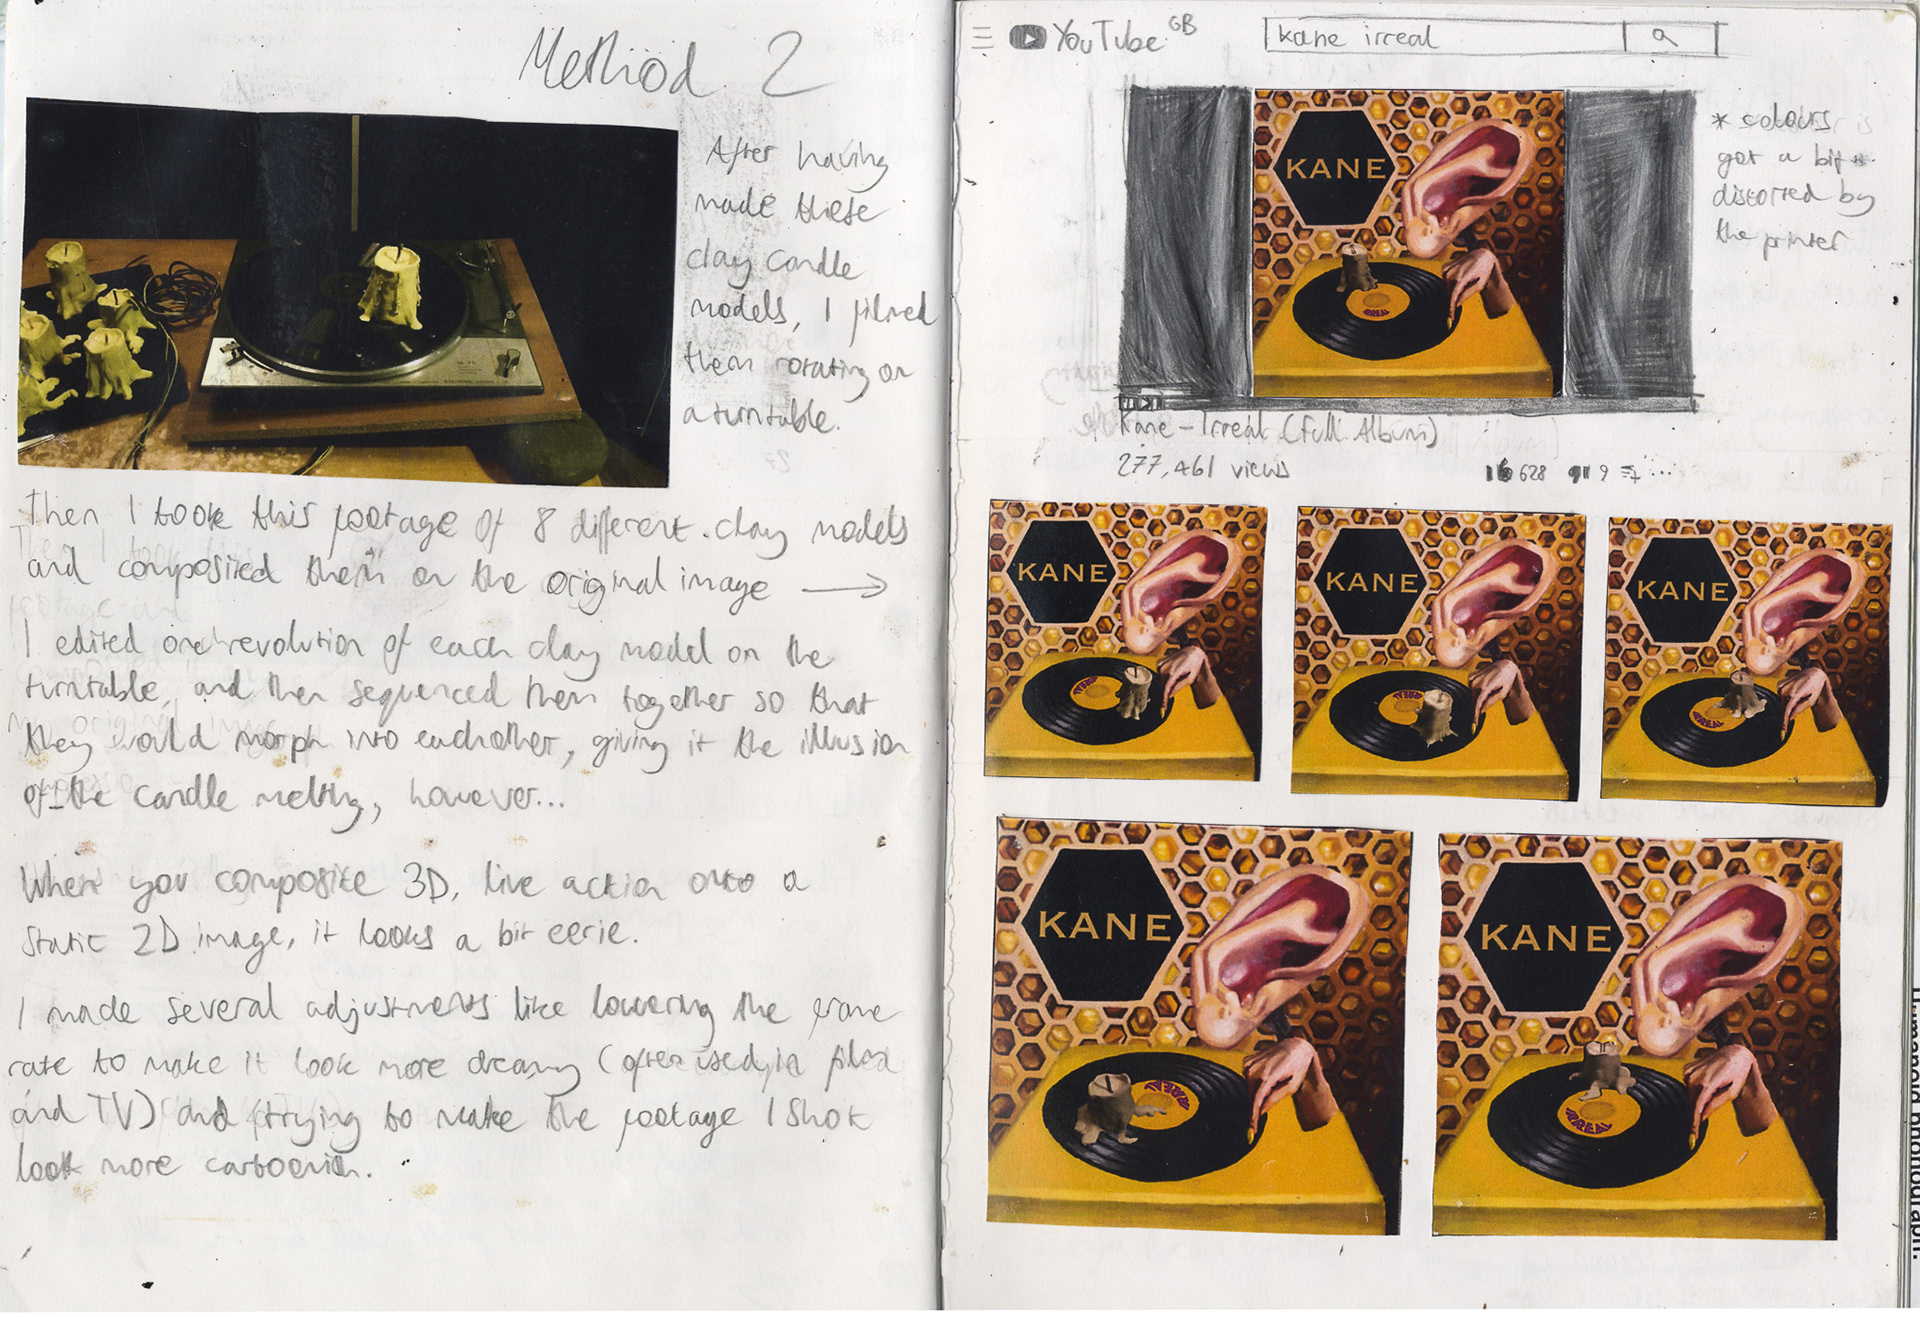 Method 2
After having
made these
clay candle
models, I filmed
them rotating on
a turntable.
Then I took this footage of 8 different clay models
and composited them on the original image →
I edited one revolution of each clay model on the
turntable, and then sequenced them together so that
they would morph into eachother, giving it the illusion
of the candle melting, however...
When you composite 3D, live action onto a
static 2D image, it looks a bit eerie.
I made several adjustments like lowering the frame
rate to make it look more dreamy (often used in film
and TV) and trying to make the footage I shot
look more cartoonish.
YouTube GB
kane irreal
KANE
IRREAL
* colours
got a bit
distorted by
the printer
Kane - Irreal (Full Album)
277,461 views
628 9
KANE
IRREAL
KANE
IRREAL
KANE
IRREAL
KANE
IRREAL
KANE
IRREAL